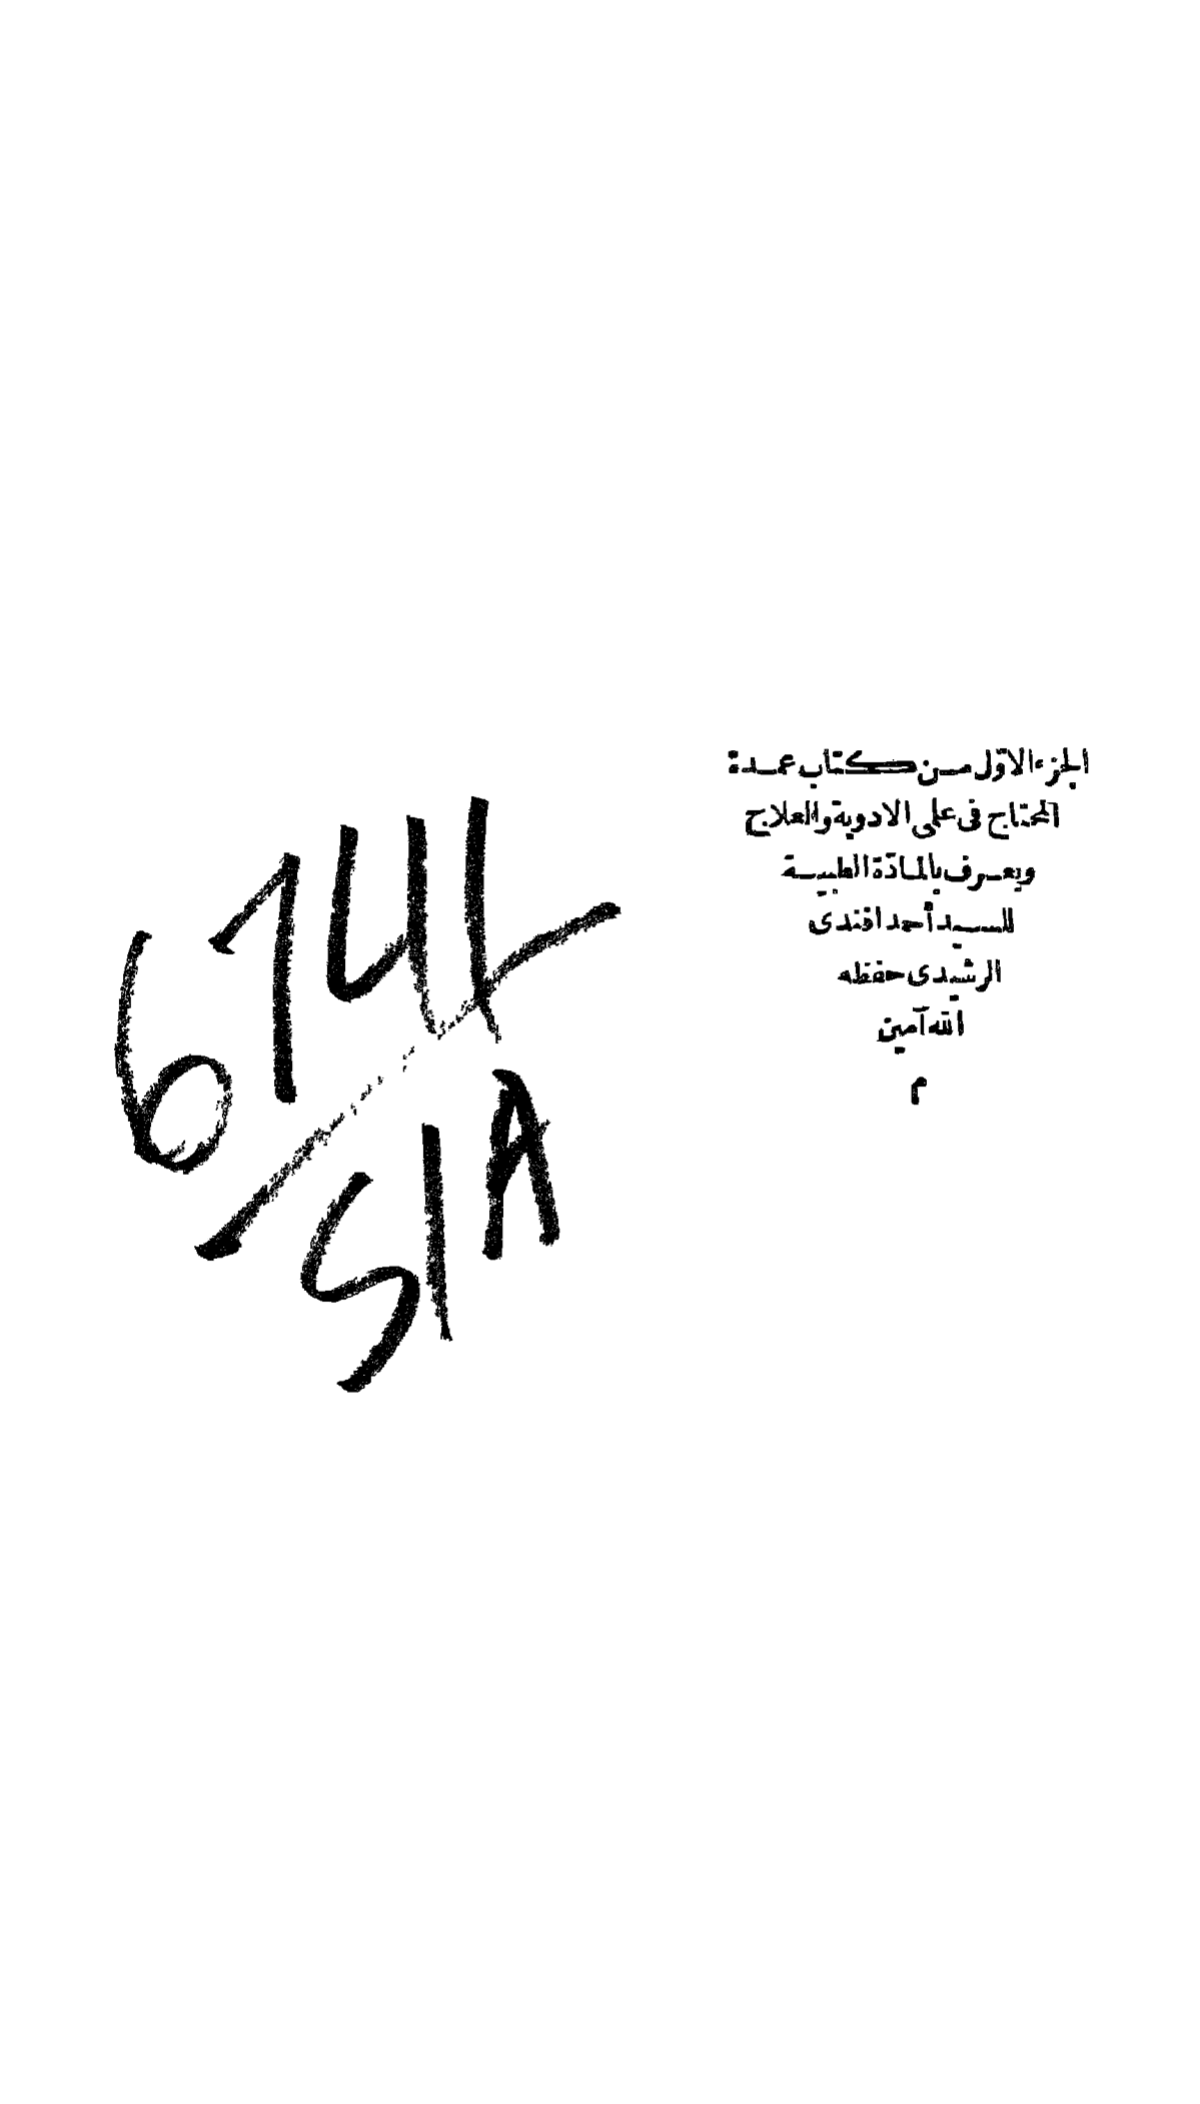 الجزء الاوّل من كتاب عمدة
المحتاج فى علمى الادوية والعلاج
ويعرف بالمادّة الطبية
للسيد أحمد افندى
الرشيدى حفظه
الله آمين
م